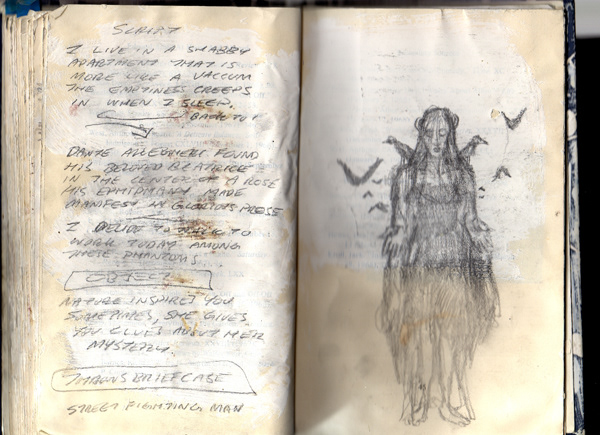 SCRIPT
I LIVE IN A SHABBY
APARTMENT THAT IS
MORE LIKE A VACCUM
THE EMPTINESS CREEPS
IN WHEN I SLEEP.
BACK TO
DANTE ALLEGHIERI FOUND
HIS BELOVED BEATRICE
IN THE CENTER OF A ROSE
HIS EPHIPHANY MADE
MANIFEST IN GLORIOUS PROSE
I DECIDE TO WALK TO
WORK TODAY AMONG
THESE PHANTOMS...
OBJECT
NATURE INSPIRES YOU
SOMETIMES, SHE GIVES
YOU CLUES ABOUT HER
MYSTERY.
THROWS BRIEFCASE
STREET FIGHTING MAN